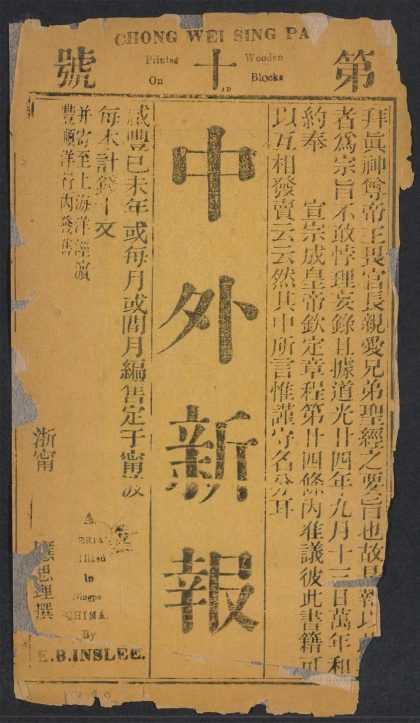 CHONG WEI SING PA
第十號
Printed Wooden
On Blocks
拜眞神尊帝王畏官長親愛兄弟聖經之要旨也故是報以
者為宗旨不敢悖理妄錄且據道光廿四年九月十三日萬年和
約奉 宣宗成皇帝欽定章程第廿四條內准議彼此書籍可
以互相發賣云云然其中所言惟謹守名分耳
中外新報
咸豐己未年或每月或間月編售定于甯波
每本計錢十文
併寄至上海洋涇濱
豐順洋行內發售
浙甯
應思理撰
A
In
Ningpo
CHINA.
By
E.B.INSLEE.